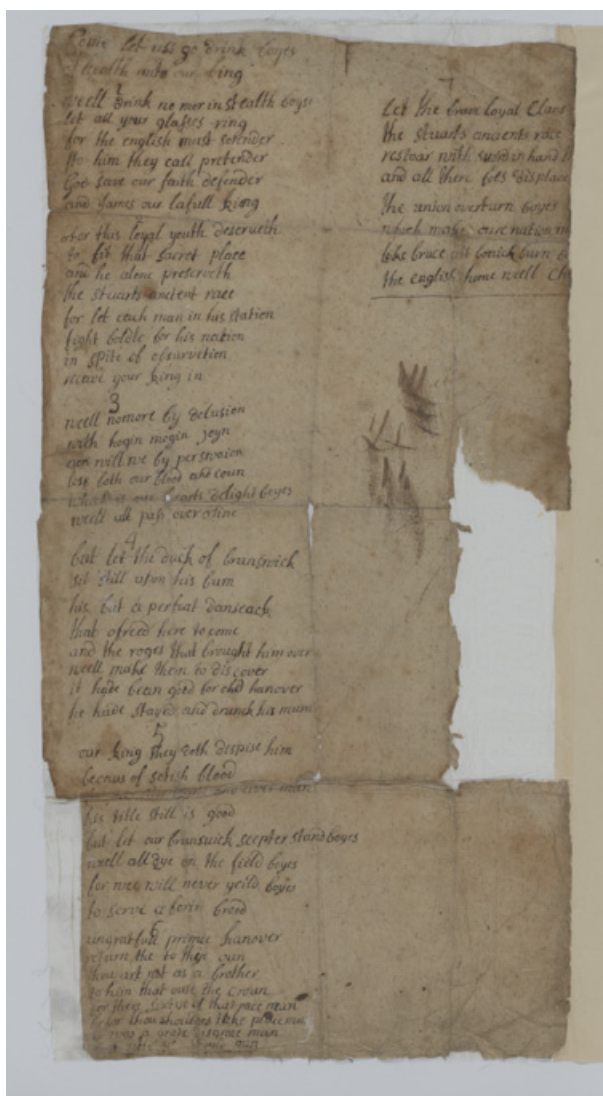 Come let us go drink boyes
A health unto our king
1
weell drink no mor in stealth boyes
let all your glasses ring
for the english must sorender
to him they call pretender
God save our faith defender
and James our lafull king
this loyal youth deserveth
to that sacret place
and he alone preserveth
the stuarts ancient race
for let each man in his station
fight boldle for his nation
in spite of
your king in
3
weell nomore by delusion
with hogin mogin joyn
nor will we by
lose both our blood and coun
what is our hearts delight boyes
weell all pass over
4
but let the duck of brunswick
sit still upon his bum
his but a perfeat
that ofreed here to come
and the roges that brought him over
weell make them to discover
it hade been good for old hanover
he hade stayed and drunck his mum
5
our king they doth dispise him
becaus of sotish blood
man
his title still is good
but let our brunswick scepter stand boyes
weell all dye on the field boyes
for wee will never yeild boyes
to serve a breed
6
ungratfull prince hanover
return the to thy oun
thou art not as a brother
to him that ouse the croun
of that race man
thou
man
man
7
Let the brave loyal Clans
the stuarts ancients race
restoar with sword in hand
and all there foes displace
the union overturn boyes
which makes oure nation
like bruce att bonick burn
the english home weell